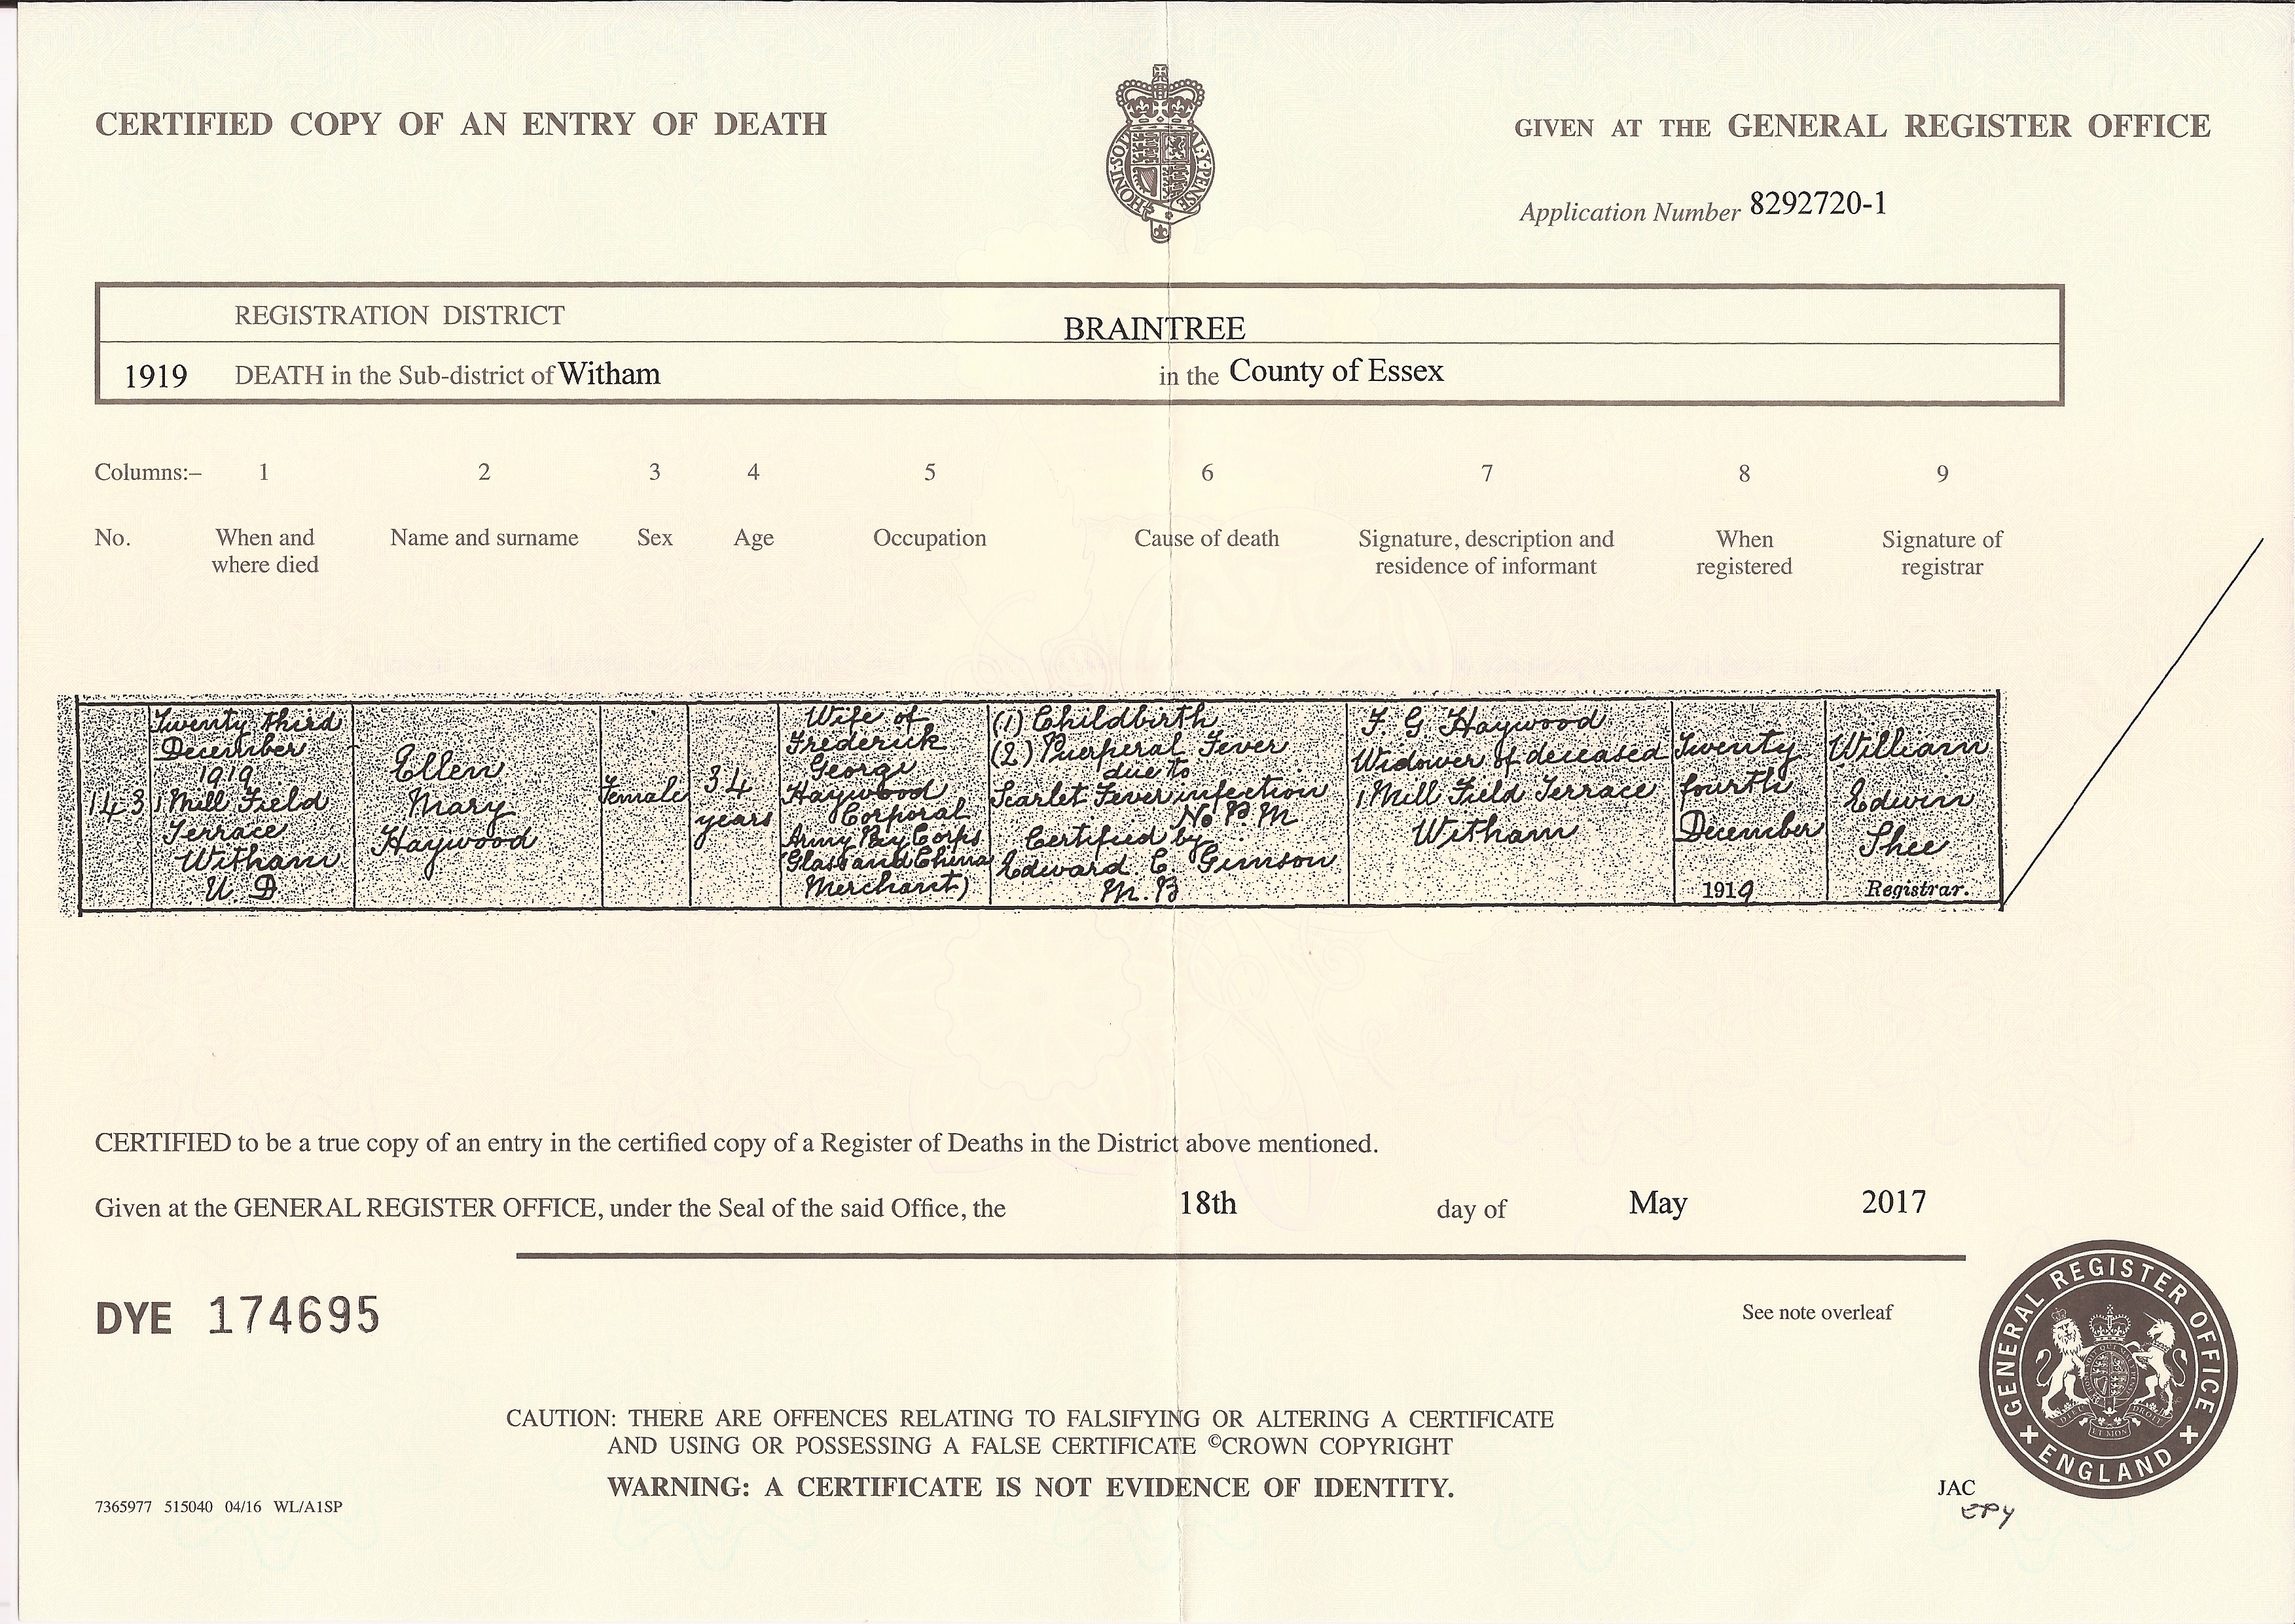 CERTIFIED COPY OF AN ENTRY OF DEATH
GIVEN AT THE GENERAL REGISTER OFFICE
HONI·SOIT
MAL·Y·PENSE
Application Number 8292720-1
REGISTRATION DISTRICT BRAINTREE
1919 DEATH in the Sub-district of Witham in the County of Essex
Columns:– 1 2 3 4 5 6 7 8 9
No.
When and
where died
Name and surname
Sex
Age
Occupation
Cause of death
Signature, description and
residence of informant
When
registered
Signature of
registrar
143
Twenty third
December
1919
1 Mill Field
Terrace
Witham
U. D
Ellen
Mary
Haywood
Female
34
years
Wife of
Frederick
George
Haywood
Corporal
Army Pay Corps
(Glass and China
Merchant)
(1) Childbirth
(2) Puerperal Fever
due to
Scarlet Fever infection
No P. M
Certified by
Edward C. Gimson
M. B
F. G Haywood
Widower of deceased
1 Mill Field Terrace
Witham
Twenty
fourth
December
1919
William
Edwin
Shee
Registrar.
CERTIFIED to be a true copy of an entry in the certified copy of a Register of Deaths in the District above mentioned.
Given at the GENERAL REGISTER OFFICE, under the Seal of the said Office, the 18th day of May 2017
DYE 174695
See note overleaf
GENERAL REGISTER OFFICE
ENGLAND
CAUTION: THERE ARE OFFENCES RELATING TO FALSIFYING OR ALTERING A CERTIFICATE
AND USING OR POSSESSING A FALSE CERTIFICATE ©CROWN COPYRIGHT
WARNING: A CERTIFICATE IS NOT EVIDENCE OF IDENTITY.
7365977 515040 04/16 WL/A1SP
JAC